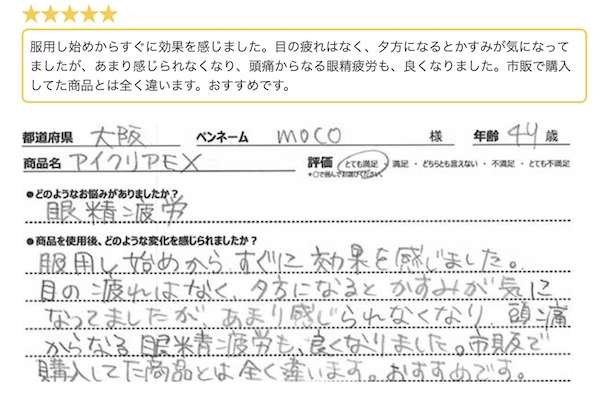 ★★★★★
服用し始めからすぐに効果を感じました。目の疲れはなく、夕方になるとかすみが気になって
ましたが、あまり感じられなくなり、頭痛からなる眼精疲労も、良くなりました。市販で購入
してた商品とは全く違います。おすすめです。
都道府県 大阪 ペンネーム moco 様 年齢 44 歳
商品名 アイクリアEX 評価 とても満足 ・ 満足 ・ どちらとも言えない ・ 不満足 ・ とても不満足
*○で囲んでお選びください。
●どのようなお悩みがありましたか?
眼精疲労
●商品を使用後、どのような変化を感じられましたか?
服用し始めから、すぐに効果を感じました。
目の疲れはなく、夕方になるとかすみが気に
なってましたが あまり感じられなくなり、頭痛
からなる眼精疲労も、良くなりました。市販で
購入してた商品とは全く違います。おすすめです。